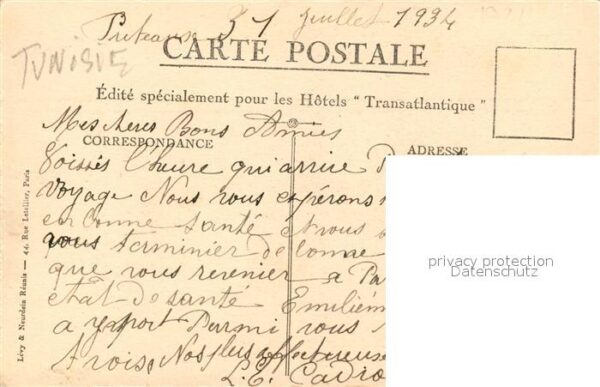 Puteaux 31 Juillet 1934
TUNISIE
CARTE POSTALE
Édité spécialement pour les Hôtels "Transatlantique"
Mes cheres Bons Amies
CORRESPONDANCE
ADRESSE
l'heure qui arrive
voyage Nous vous espérons
en bonne santé et vous
vous terminier de bonne
que vous revenier a Pa
etât de santé Emilièn
a Parmi vous
trois Nos plus affectueuse
L. E.
Lévy & Neurdein Réunis — 44, Rue Letellier, Paris
privacy protection
Datenschutz